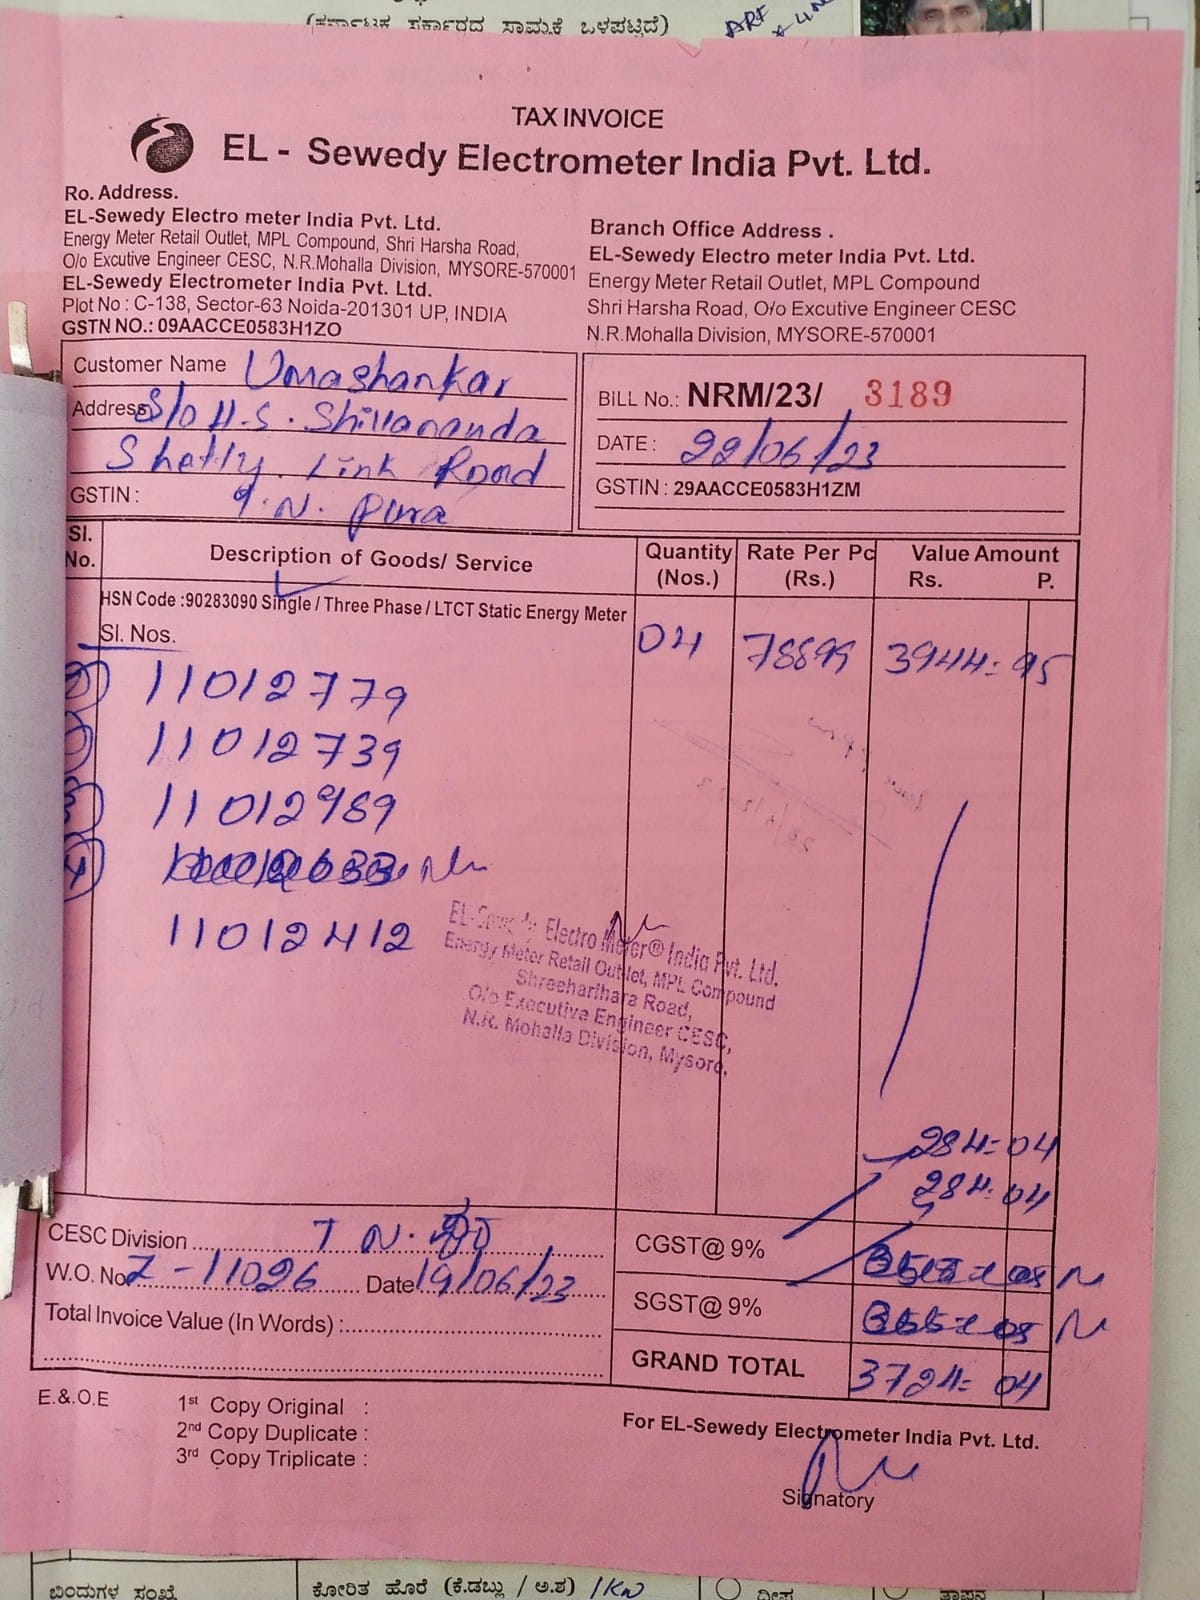 (ಕರ್ನಾಟಕ ಸರ್ಕಾರದ ಸಾಮ್ಯಕ್ಕೆ ಒಳಪಟ್ಟಿದೆ)
ARF
TAX INVOICE
EL - Sewedy Electrometer India Pvt. Ltd.
Ro. Address.
EL-Sewedy Electro meter India Pvt. Ltd.
Energy Meter Retail Outlet, MPL Compound, Shri Harsha Road,
O/o Excutive Engineer CESC, N.R.Mohalla Division, MYSORE-570001
EL-Sewedy Electrometer India Pvt. Ltd.
Plot No : C-138, Sector-63 Noida-201301 UP, INDIA
GSTN NO.: 09AACCE0583H1ZO
Branch Office Address .
EL-Sewedy Electro meter India Pvt. Ltd.
Energy Meter Retail Outlet, MPL Compound
Shri Harsha Road, O/o Excutive Engineer CESC
N.R.Mohalla Division, MYSORE-570001
Customer Name Umashankar
Address S/o H.S. Shivananda
Shetty. Link Road
GSTIN : T.N. Pura
BiLL No.: NRM/23/ 3189
DATE : 22/06/23
GSTIN : 29AACCE0583H1ZM
Sl. No. Description of Goods/ Service Quantity (Nos.) Rate Per Pc (Rs.) Value Amount Rs. P.
HSN Code :90283090 Single / Three Phase / LTCT Static Energy Meter
Sl. Nos. 04 78899 3944=95
11012779
11012739
11012989
11012412
EL-Sewedy Electro Meter® India Pvt. Ltd.
Energy Meter Retail Outlet, MPL Compound
Shreeharihara Road,
O/o Executive Engineer CESC,
N.R. Mohalla Division, Mysore.
284=04
284=04
CESC Division T N.
W.O. No Z-11026 Date 19/06/23
Total Invoice Value (In Words) :
CGST@ 9%
SGST@ 9%
GRAND TOTAL 3724=04
E.&.O.E
1st Copy Original :
2nd Copy Duplicate :
3rd Copy Triplicate :
For EL-Sewedy Electrometer India Pvt. Ltd.
Signatory
ಬಿಂದುಗಳ ಸಂಖ್ಯೆ
ಕೋರಿತ ಹೊರೆ (ಕೆ.ಡಬ್ಲು / ಅ.ಶ) 1KW
ದೀಪ
ತಾಪನ